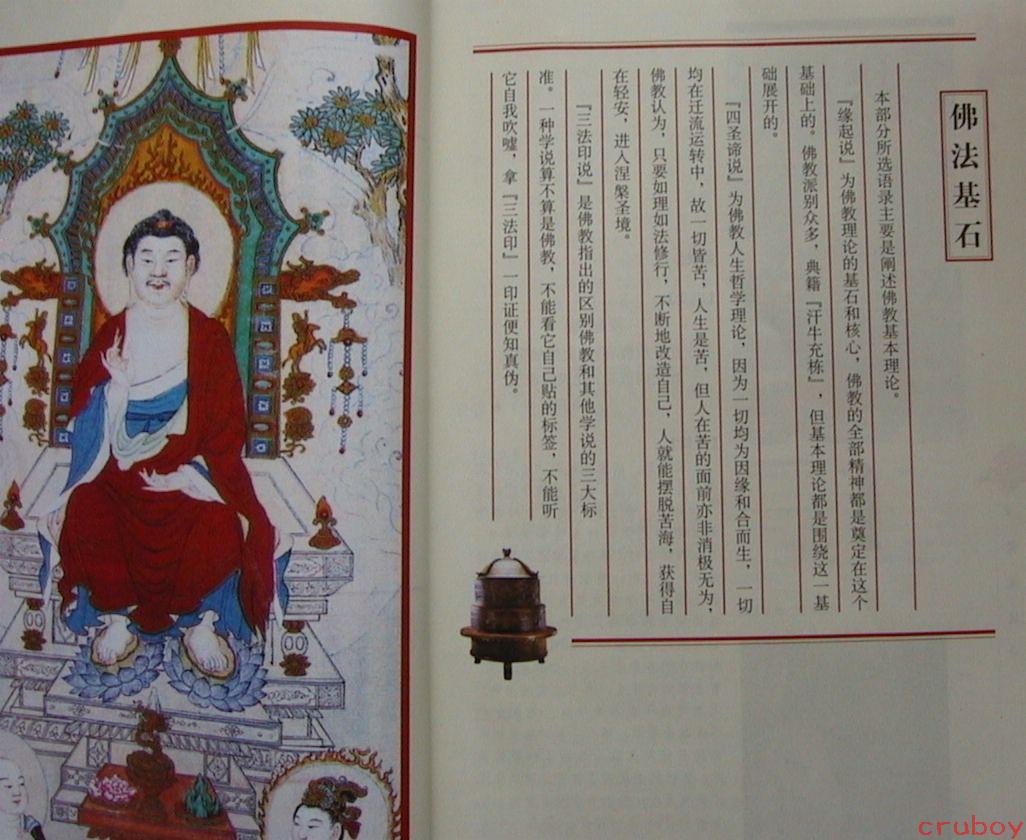 佛法基石
本部分所选语录主要是阐述佛教基本理论。
『缘起说』为佛教理论的基石和核心，佛教的全部精神都是奠定在这个
基础上的。佛教派别众多，典籍『汗牛充栋』，但基本理论都是围绕这一基
础展开的。
『四圣谛说』为佛教人生哲学理论，因为一切均为因缘和合而生，一切
均在迁流运转中，故一切皆苦，人生是苦，但人在苦的面前亦非消极无为，
佛教认为，只要如理如法修行，不断地改造自己，人就能摆脱苦海，获得自
在轻安，进入涅槃圣境。
『三法印说』是佛教指出的区别佛教和其他学说的三大标
准。一种学说算不算是佛教，不能看它自己贴的标签，不能听
它自我吹嘘，拿『三法印』一印证便知真伪。
cruboy